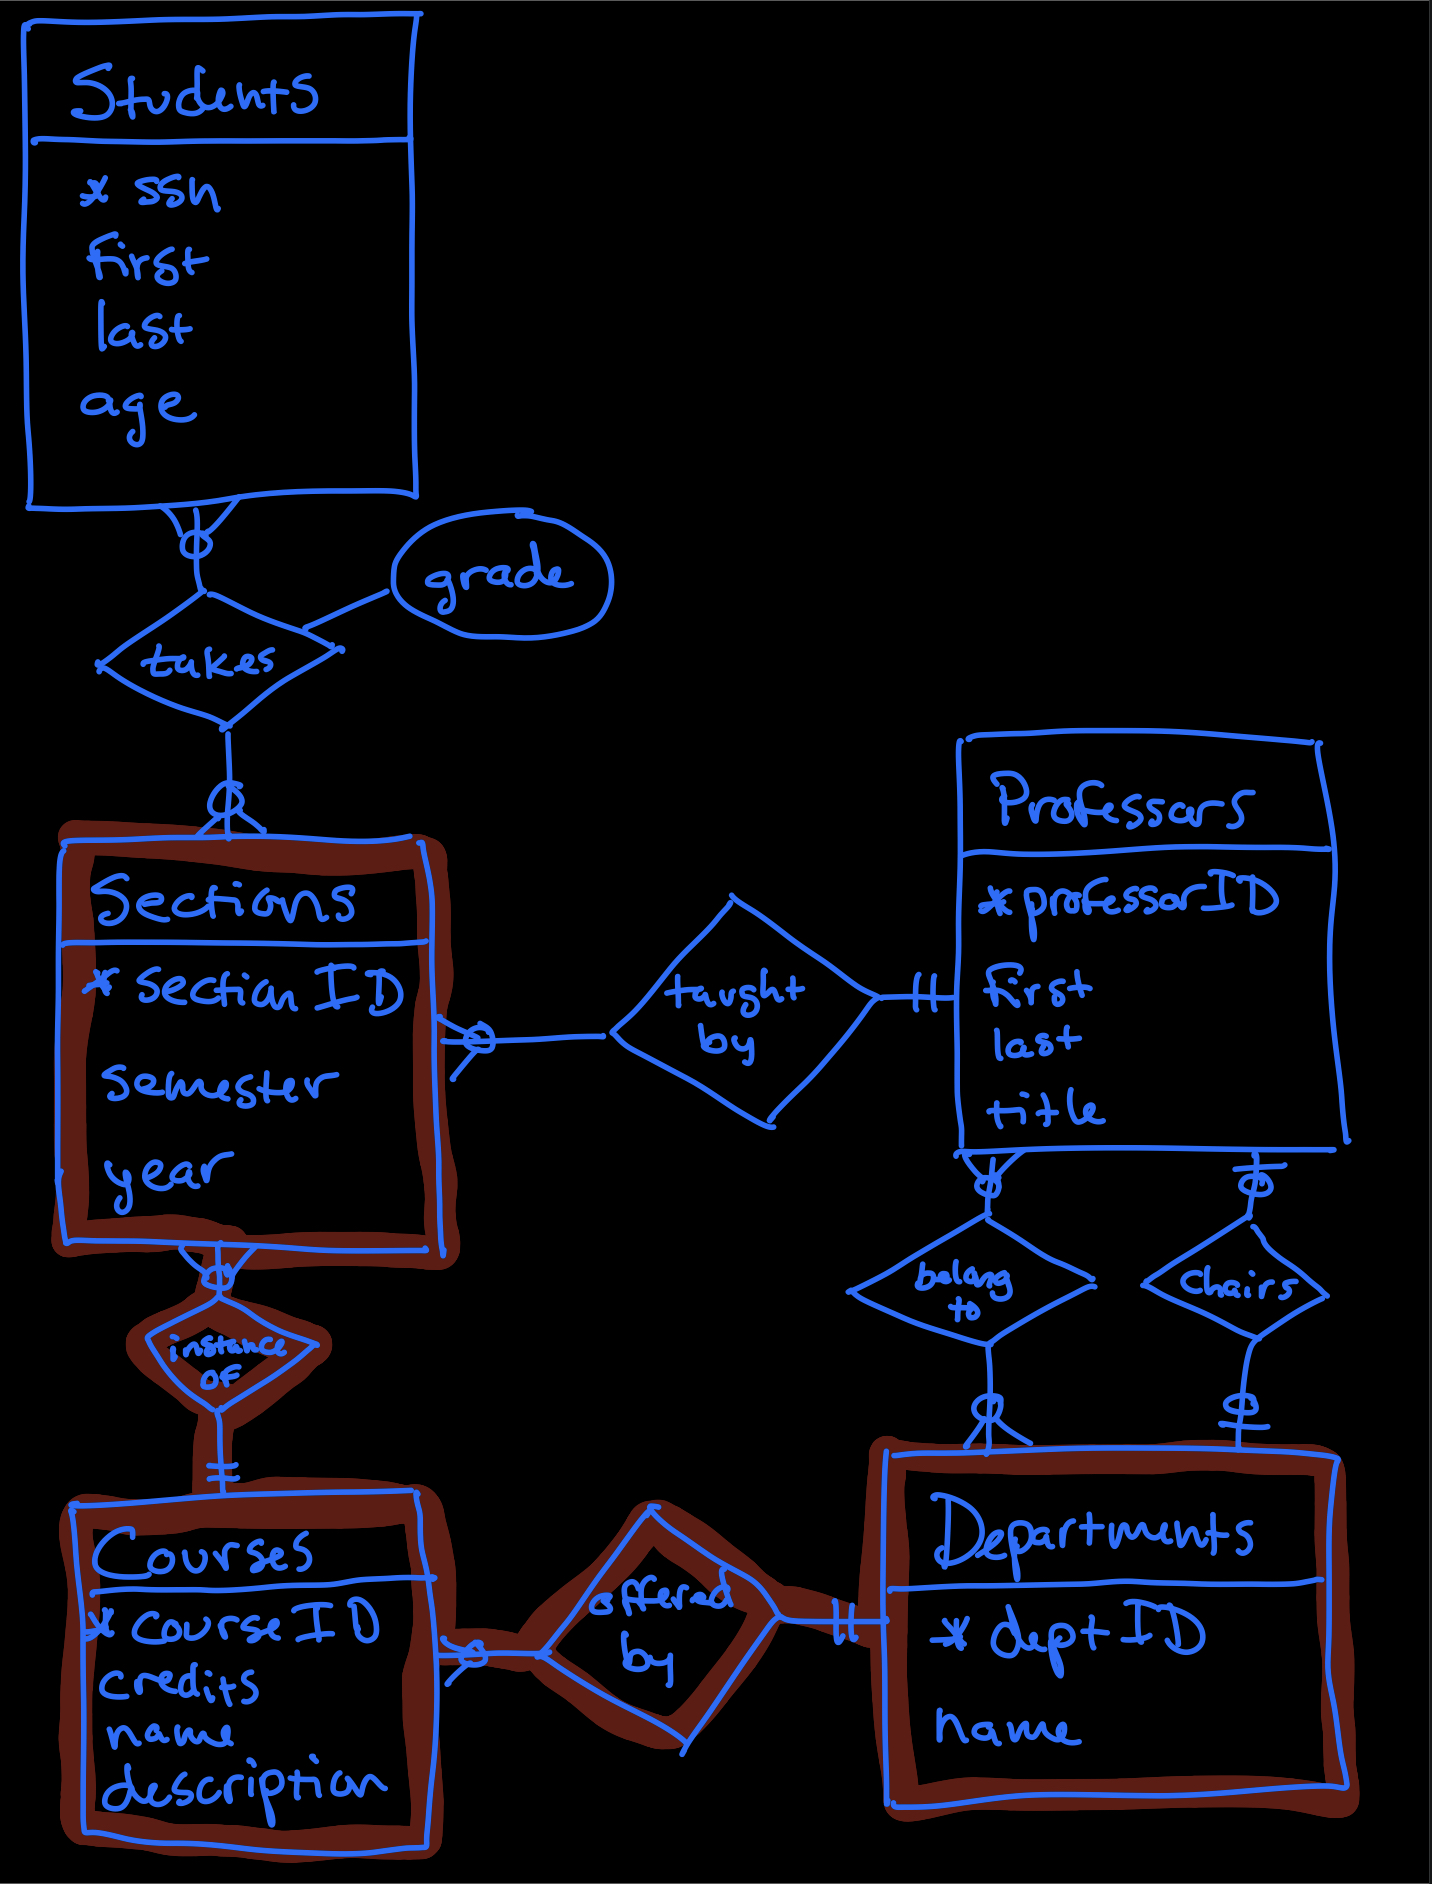 Students
* ssn
first
last
age
grade
takes
Sections
* section ID
semester
year
taught
by
Professors
* professor ID
first
last
title
belong
to
chairs
instance
of
Courses
* course ID
credits
name
description
offered
by
Departments
* dept ID
name